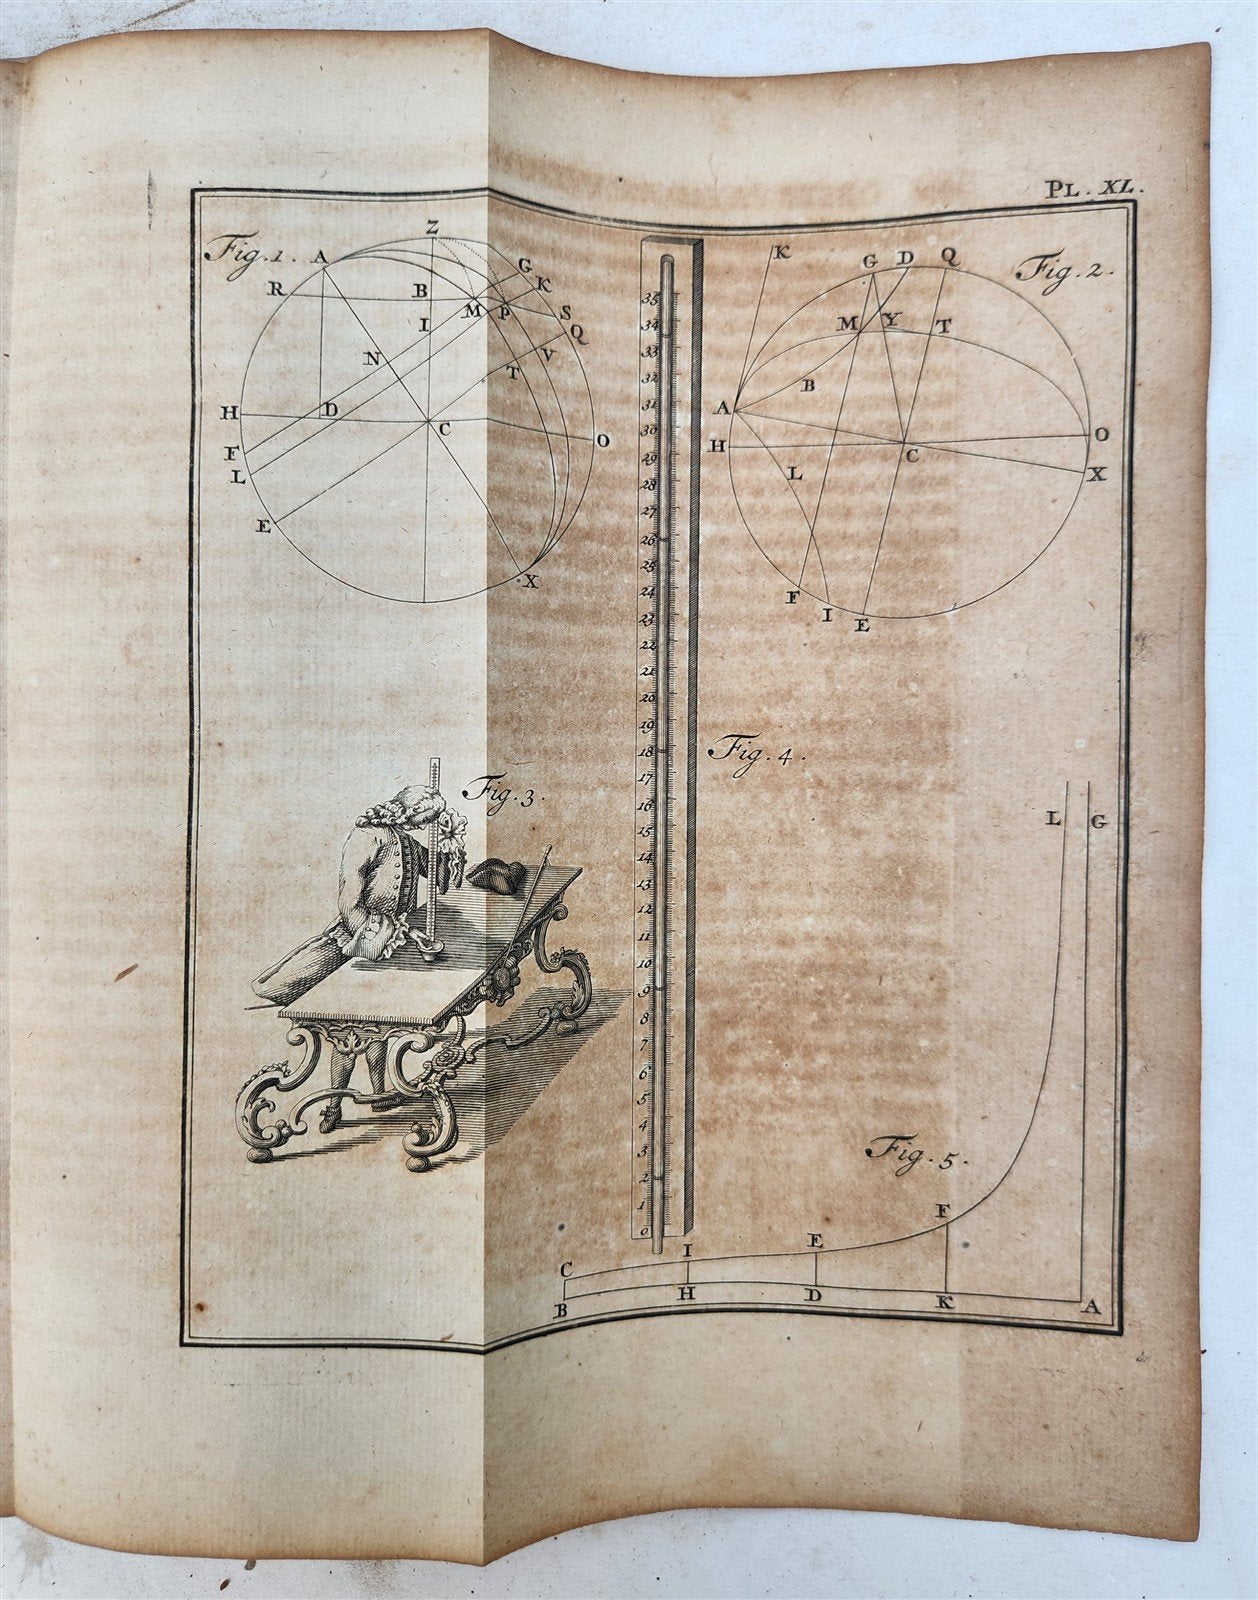 PL. XL.
Fig. 1.
Z
A
G
K
R
B
M
P
S
I
Q
N
V
T
H
D
C
O
F
L
E
X
Fig. 2.
K
G
D
Q
M
Y
T
B
A
H
C
O
L
X
F
I
E
Fig. 3.
Fig. 4.
35
34
33
32
31
30
29
28
27
26
25
24
23
22
21
20
19
18
17
16
15
14
13
12
11
10
9
8
7
6
5
4
3
2
1
0
Fig. 5.
L
G
F
E
I
C
B
H
D
K
A